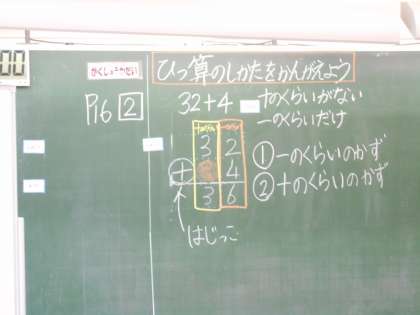 00
がくしゅうかだい
ひっ算のしかたをかんがえよう
P16 2
32+4
十のくらいがない
一のくらいだけ
3 2
+ 4
3 6
はじっこ
①一のくらいのかず
②十のくらいのかず